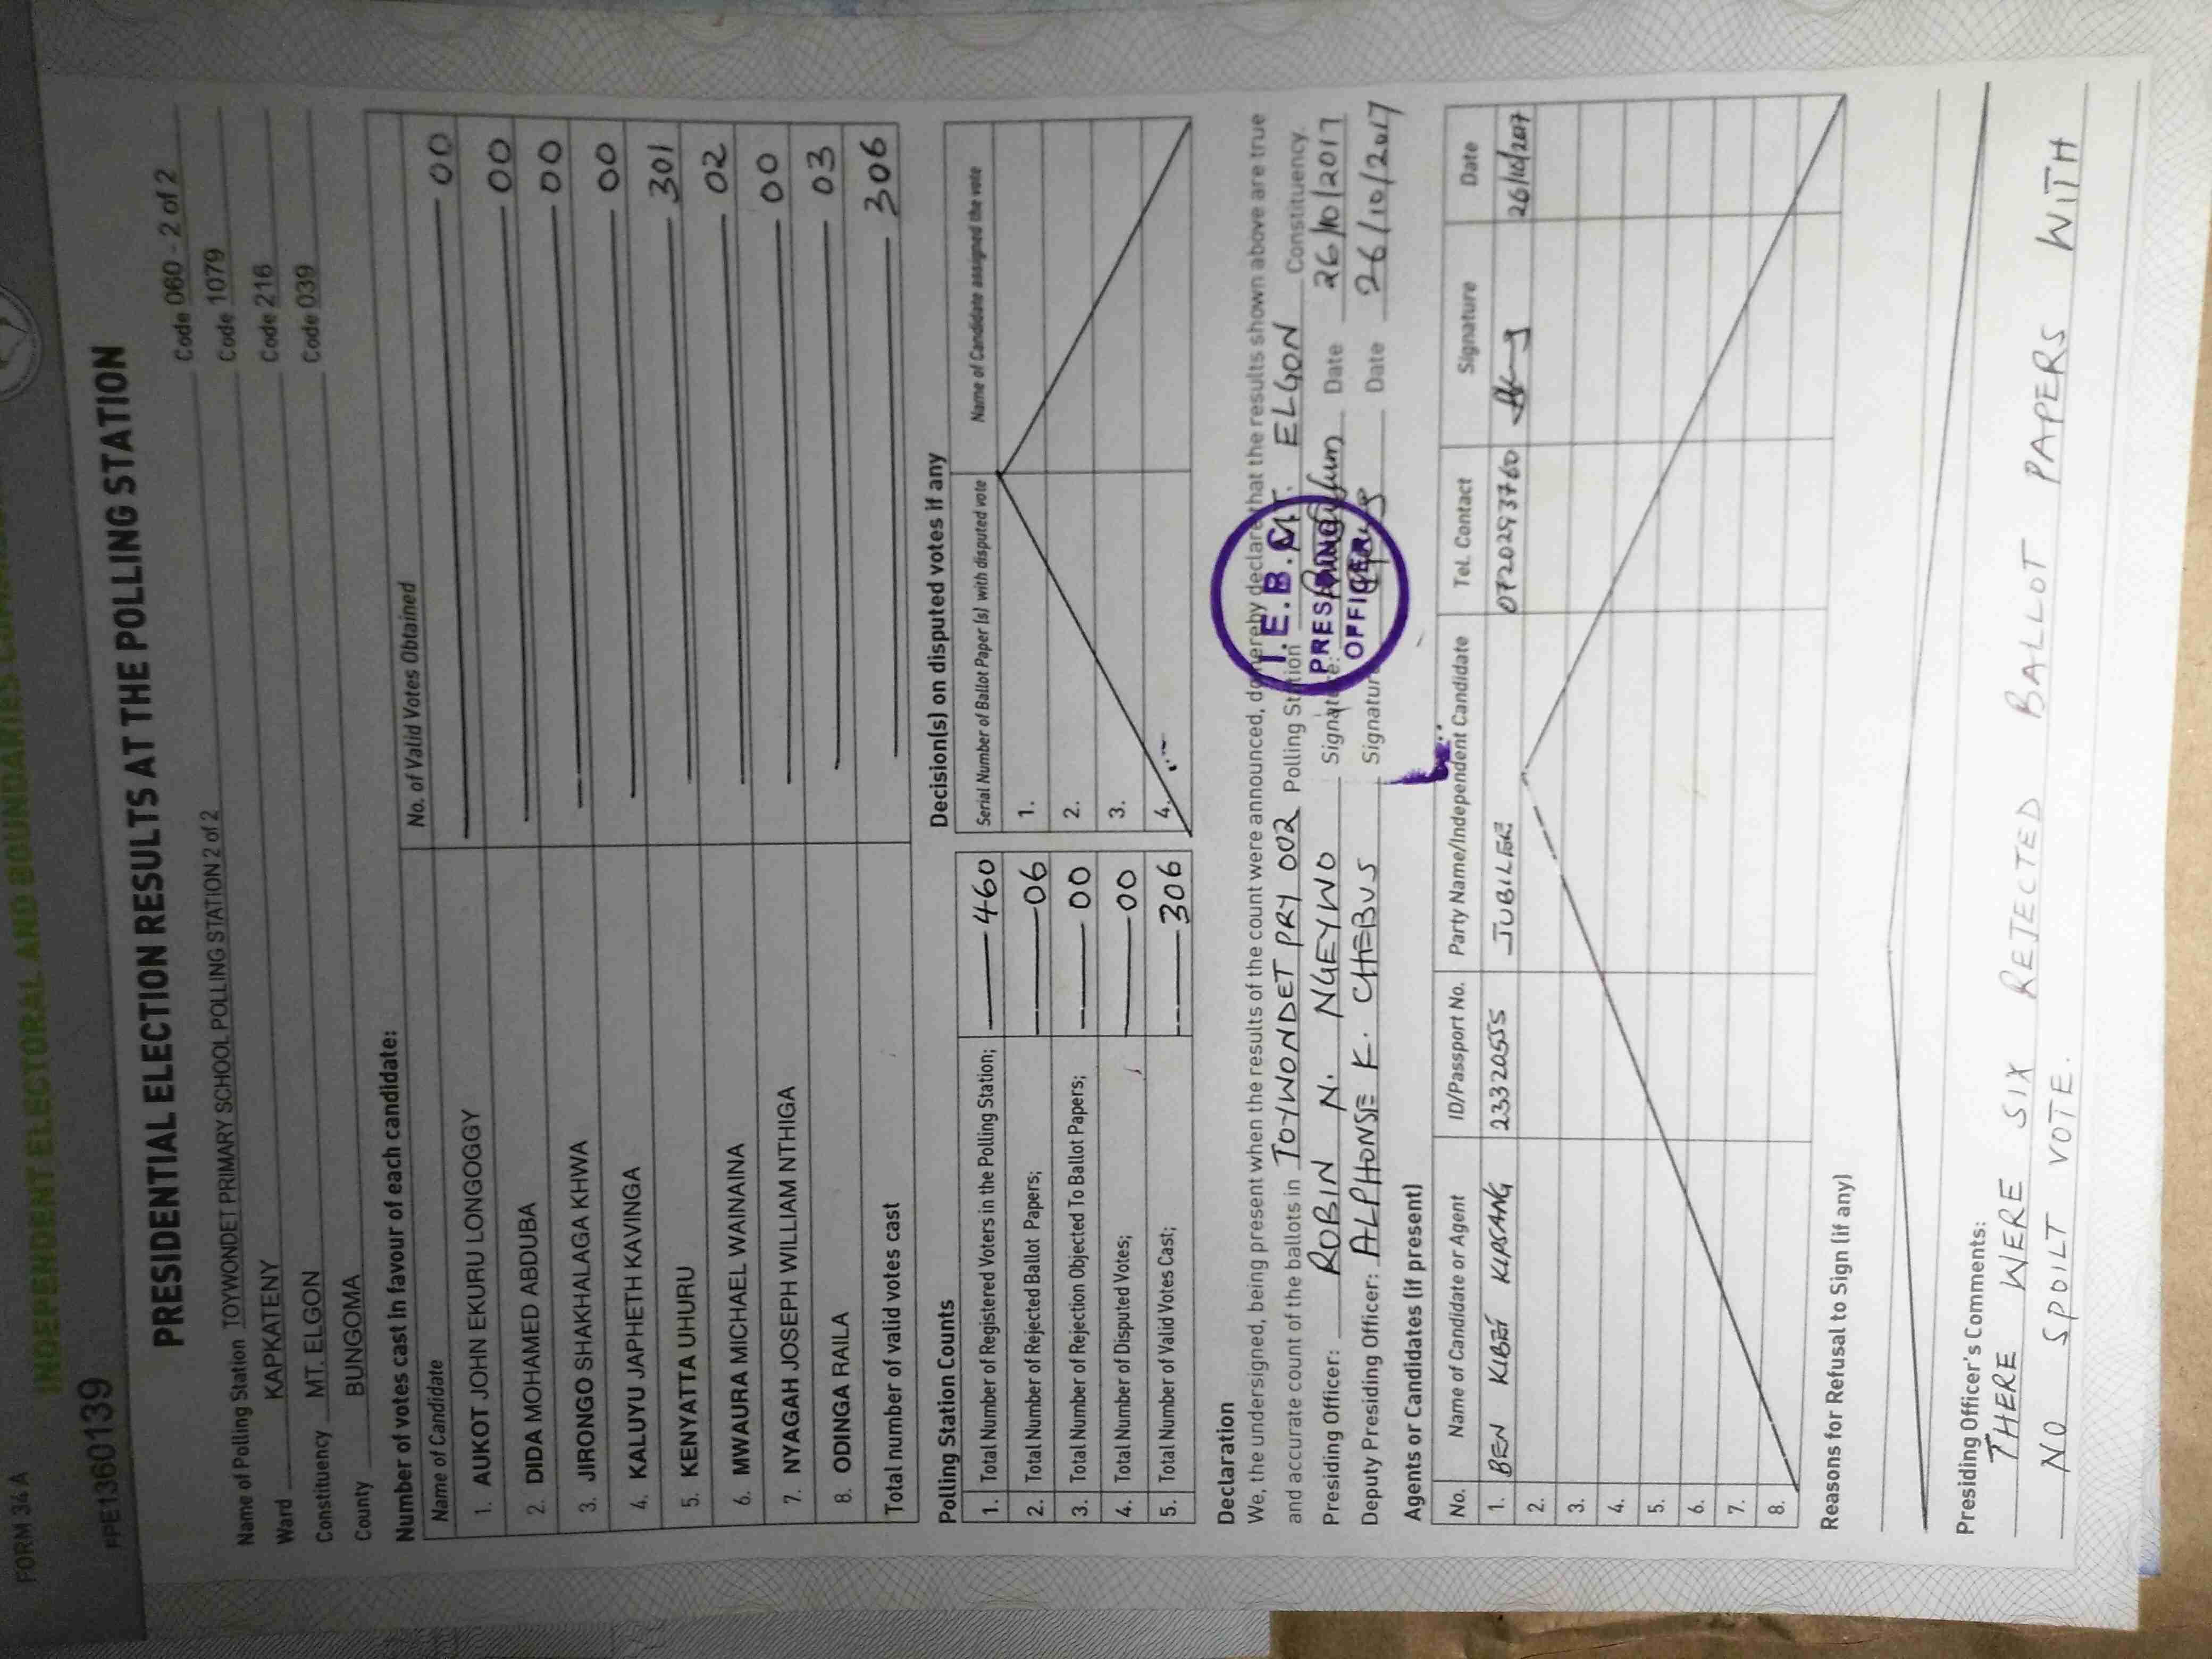 FORM 34 A
INDEPENDENT ELECTORAL AND BOUNDARIES
PPE1360139
PRESIDENTIAL ELECTION RESULTS AT THE POLLING STATION
Name of Polling Station TOYWONDET PRIMARY SCHOOL POLLING STATION 2 of 2 Code 060 - 2 of 2
Ward KAPKATENY Code 1079
Constituency MT. ELGON Code 216
County BUNGOMA Code 039
Number of votes cast in favour of each candidate:
Name of Candidate No. of Valid Votes Obtained
1. AUKOT JOHN EKURU LONGOGGY 00
2. DIDA MOHAMED ABDUBA 00
3. JIRONGO SHAKHALAGA KHWA 00
4. KALUYU JAPHETH KAVINGA 00
5. KENYATTA UHURU 301
6. MWAURA MICHAEL WAINAINA 02
7. NYAGAH JOSEPH WILLIAM NTHIGA 00
8. ODINGA RAILA 03
Total number of valid votes cast 306
Polling Station Counts
1. Total Number of Registered Voters in the Polling Station; 460
2. Total Number of Rejected Ballot Papers; 06
3. Total Number of Rejection Objected To Ballot Papers; 00
4. Total Number of Disputed Votes; 00
5. Total Number of Valid Votes Cast; 306
Decision(s) on disputed votes if any
Serial Number of Ballot Paper (s) with disputed vote Name of Candidate assigned the vote
1.
2.
3.
4.
Declaration
We, the undersigned, being present when the results of the count were announced, do hereby declare that the results shown above are true
and accurate count of the ballots in TOYWONDET PRY 002 Polling Station MT. ELGON Constituency.
Presiding Officer: ROBIN N. NGEYWO Signature: Date 26/10/2017
Deputy Presiding Officer: ALPHONSE K. CHEBUS Signature Date 26/10/2017
I.E.B.C
PRESIDING
OFFICER
Agents or Candidates (if present)
No. Name of Candidate or Agent ID/Passport No. Party Name/Independent Candidate Tel. Contact Signature Date
1. BEN KIBET KIPSANG 23320555 JUBILEE 0720293760 26/10/2017
2.
3.
4.
5.
6.
7.
8.
Reasons for Refusal to Sign (if any)
Presiding Officer's Comments:
THERE WERE SIX REJECTED BALLOT PAPERS WITH
NO SPOILT VOTE.